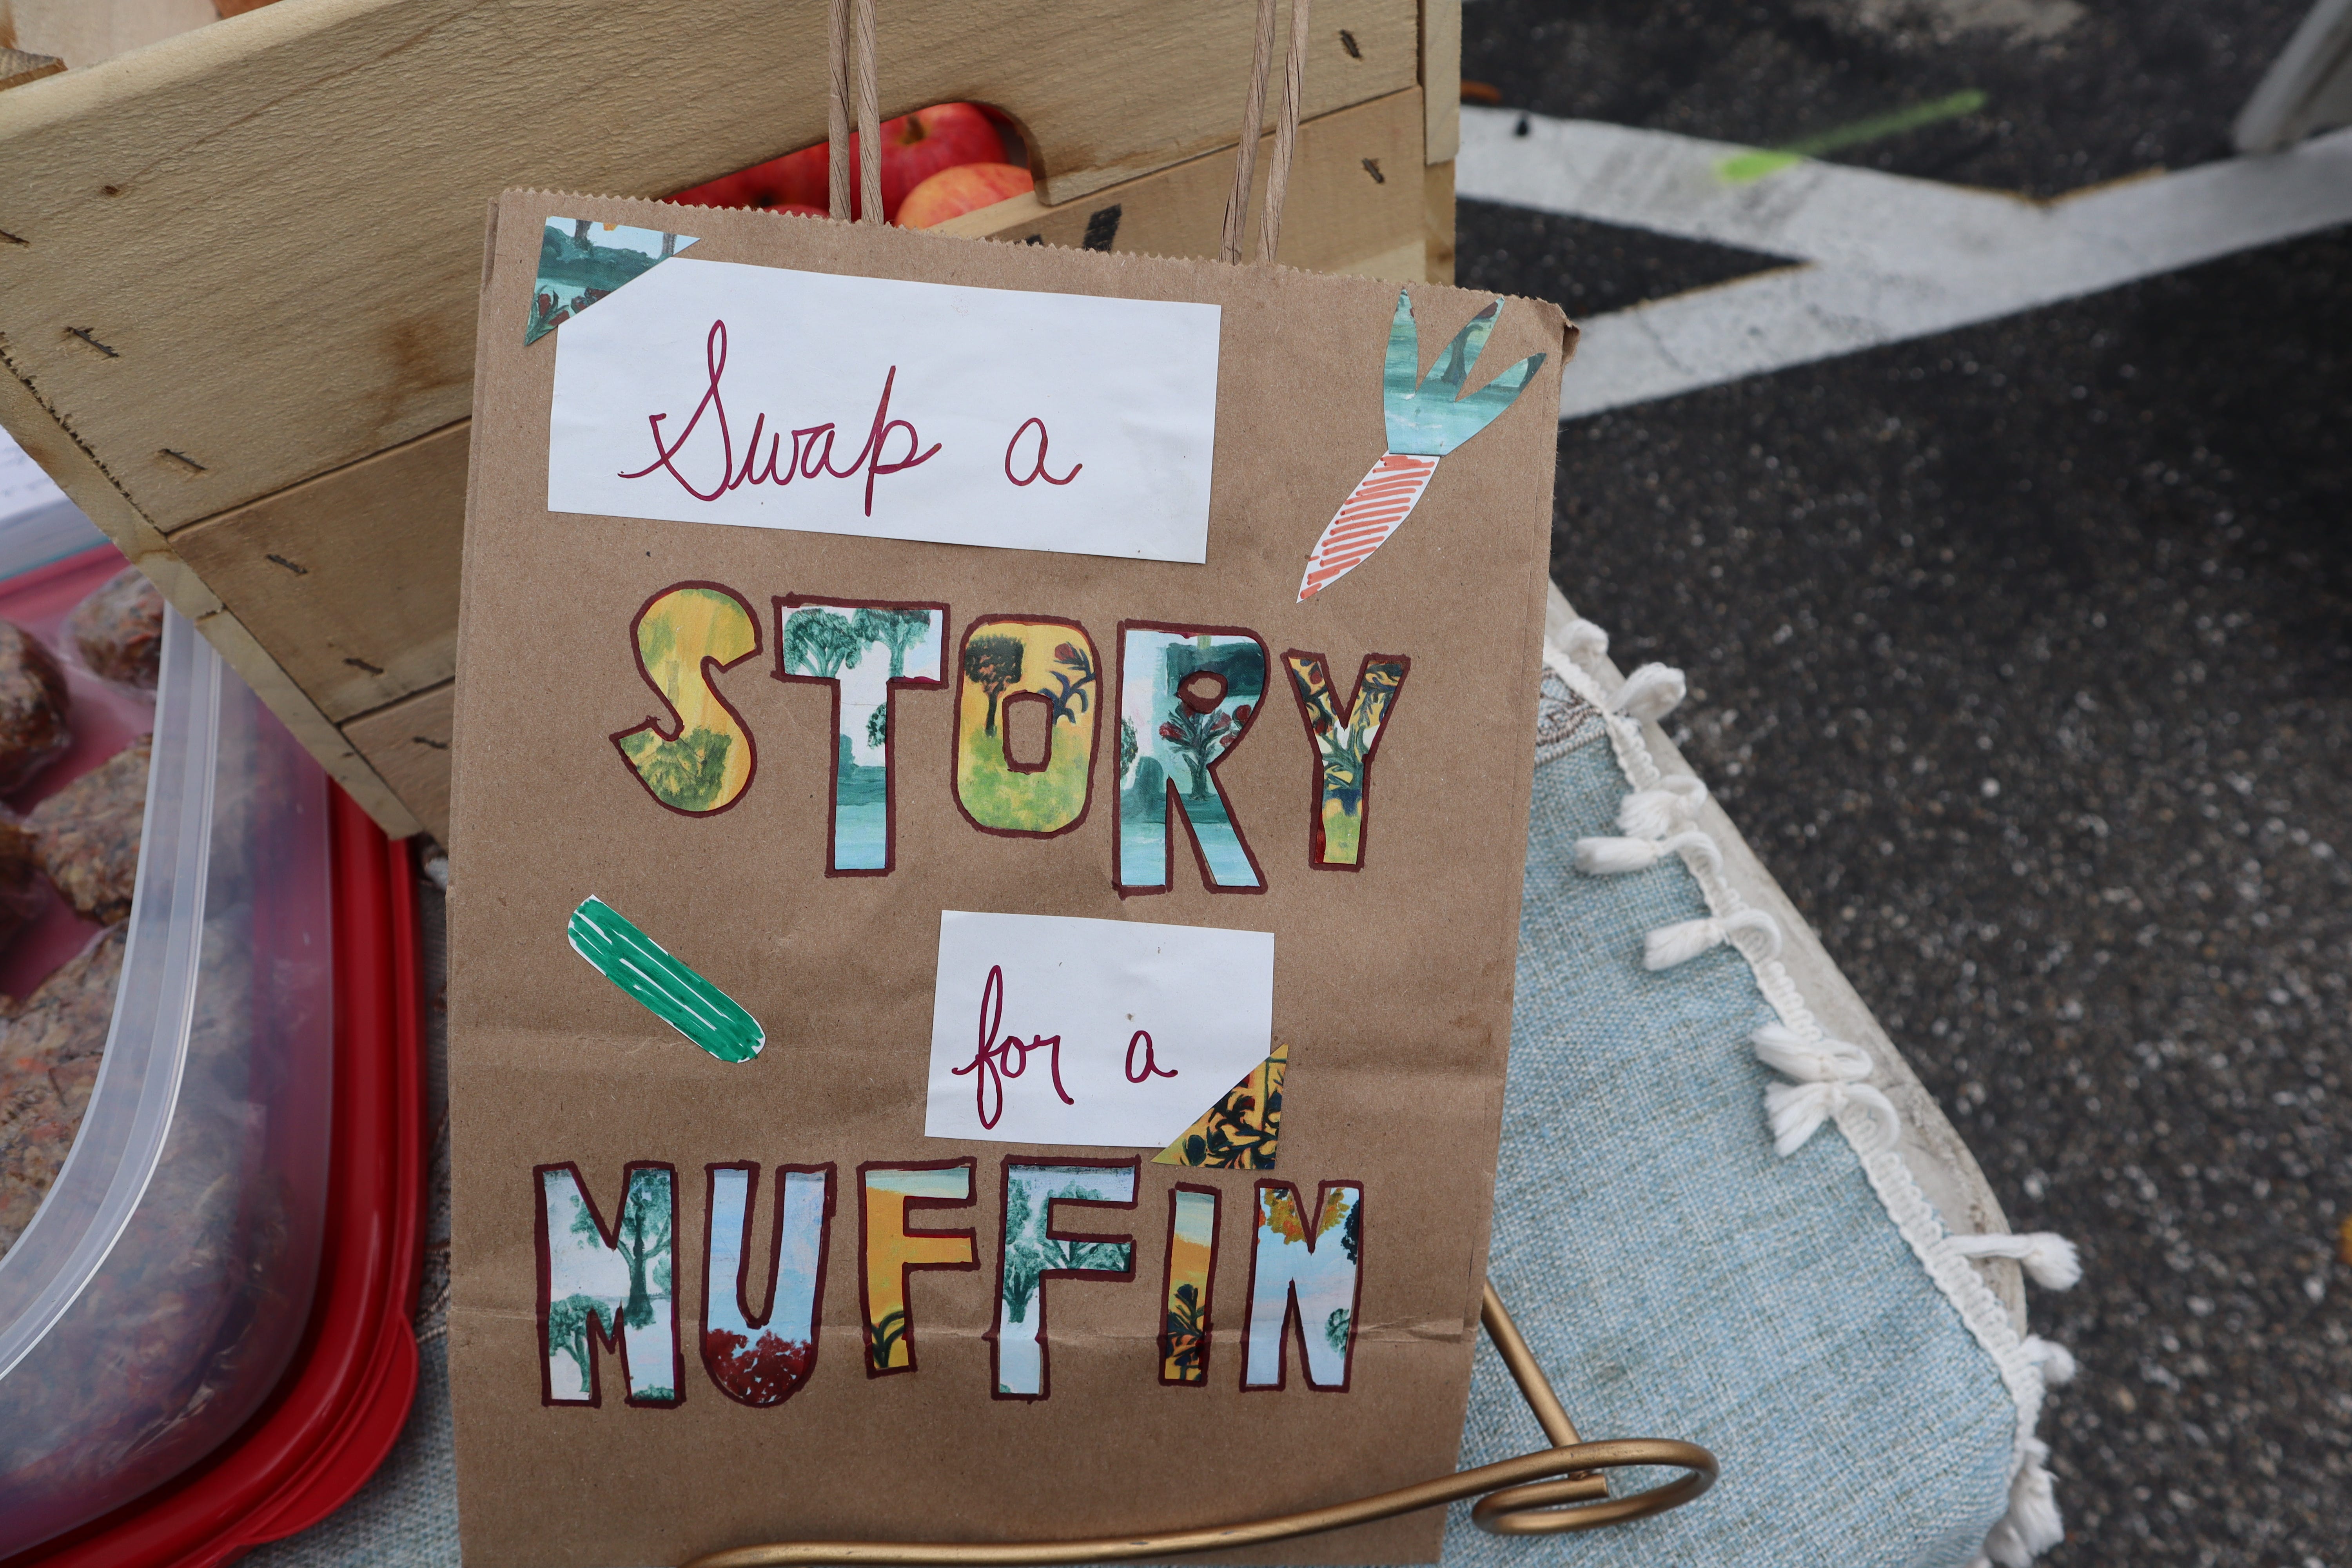 Swap a
STORY
for a
MUFFIN